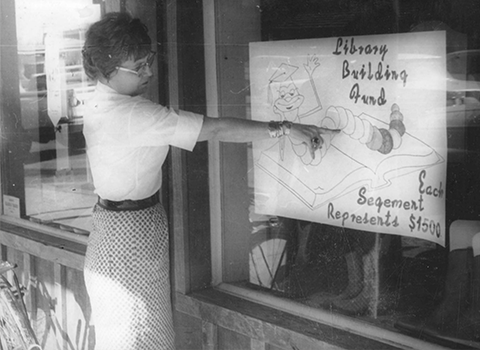 Library
Building
Fund
Each
Segement
Represents $1500